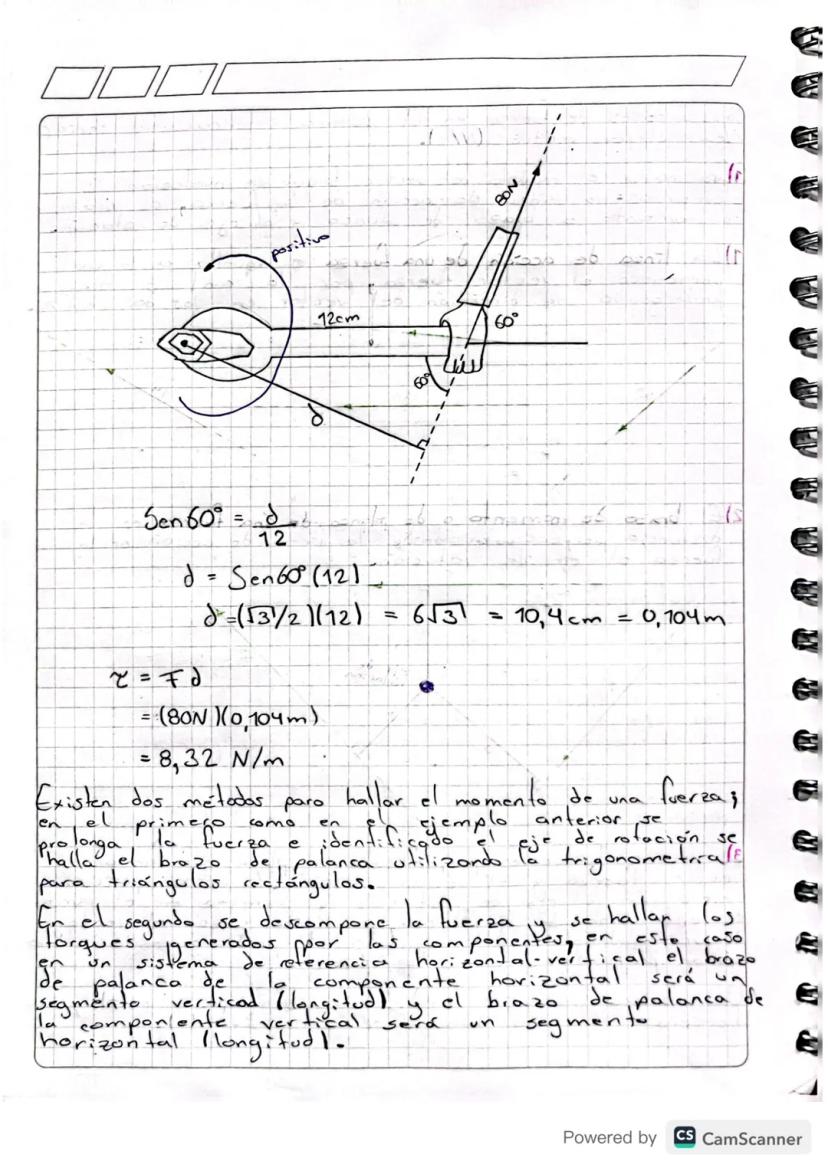 80N
positivo
12cm
60°
60°
d
Sen60° = d/12
d = Sen60°(12)
d=(√3/2)(12) = 6√3 = 10,4cm = 0,104m
τ = Fd
= (80N)(0,104m)
= 8,32 N/m
Existen dos métodos para hallar el momento de una fuerza;
en el primero como en el ejemplo anterior se
prolonga la fuerza e identificado el eje de rotación se
halla el brazo de palanca utilizando la trigonometría
para triángulos rectángulos.
En el segundo se descompone la fuerza y se hallan los
torques generados por las componentes, en este caso
en un sistema de referencia horizontal-vertical el brazo
de palanca de la componente horizontal será un
segmento vertical (longitud) y el brazo de palanca de
la componente vertical será un segmento
horizontal (longitud).
Powered by CS CamScanner